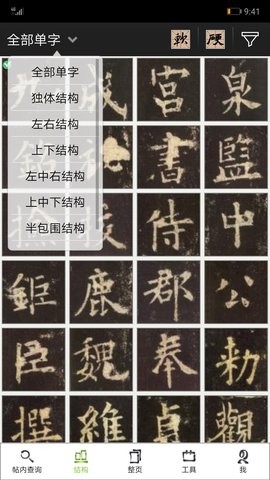 9:41
全部单字 軟 硬
全部单字
独体结构
左右结构
上下结构
左中右结构
上中下结构
半包围结构
成 宮 泉
銘 秘 書 監
撿 校 侍 中
鉅 鹿 郡 公
臣 魏 奉 勑
撰 維 貞 觀
帖内查询 结构 整页 工具 我